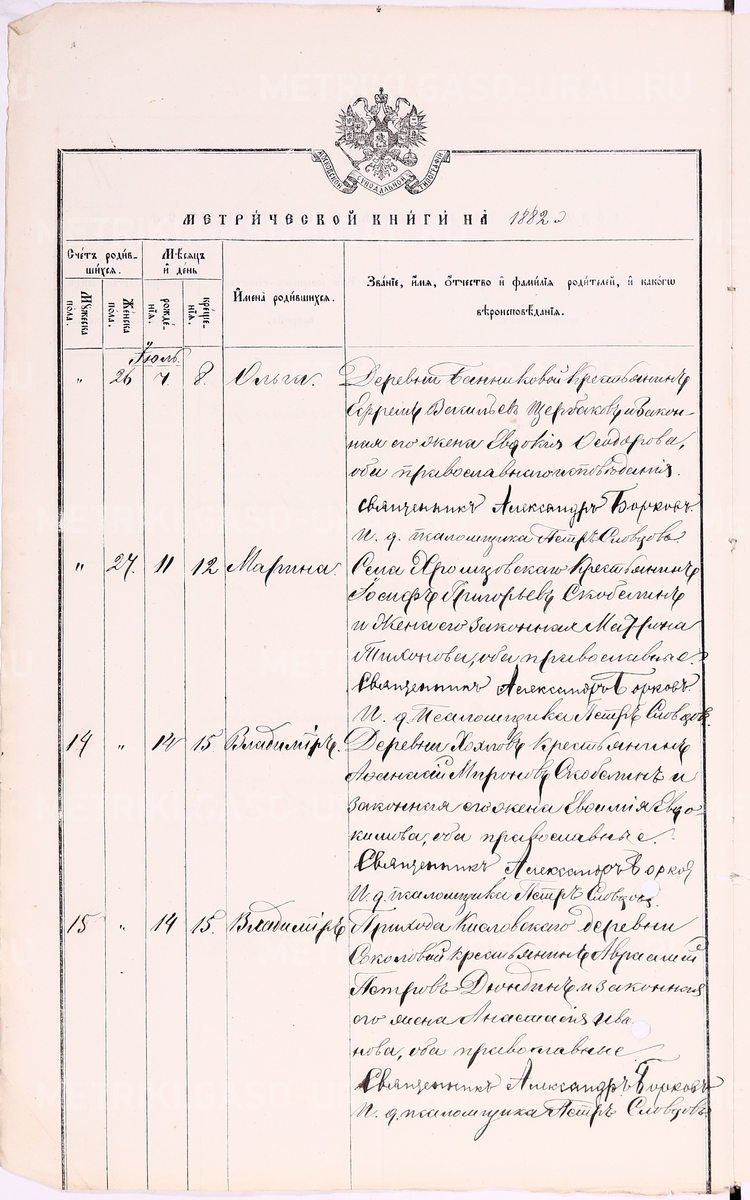 METRIKI.GASO-URAL.RU
МОСКОВСКОЙ СѴНОДАЛЬНОЙ ТИПОГРАФІИ
МЕТРИ́ЧЕСКОЙ КНИ́ГИ НА́ 1882
Сче́тъ роди́в-
ши́хся.
Мѣ́сяцъ
и҆ де́нь
И҆мена̀ роди́вшихся.
Зва́нїе, и҆́мя, ѻ҆́тчество и҆ фами́лїя роди́телей, и҆ како́гѡ
вѣроисповѣ́данїя.
Мꙋ́жеска по́ла.
Же́нска по́ла.
рожде́-нїя.
креще́-нїя.
Іюль
" 26 7. 8. Ольга. Деревни Банниковой крестьянинъ
Ефремъ Васильевъ Щербаковъ и закон-
ная его жена Евдокія Ѳеодорова,
оба православнаго исповѣданія.
Священникъ Александръ Борковъ.
И. д. псаломщика Петръ Словцовъ.
" 27. 11 12 Марина. Села Хромцовскаго крестьянинъ
Іосифъ Григорьевъ Скобелинъ
и жена его законная Матрона
Тихонова, оба православные.
Священникъ Александръ Борковъ.
И. д. Псаломщика Петръ Словцовъ.
14 " 14 15. Владиміръ. Деревни Хохловъ крестьянинъ
Аѳанасій Мироновъ Скобелинъ и
законная его жена Евфимія Евдо-
кимова, оба православные.
Священникъ Александръ Борков
И. д. псаломщика Петръ Словцовъ.
15 " 14 15. Владиміръ Прихода Кисловскаго деревни
Соколовой крестьянинъ Авраамій
Петровъ Дюндинъ и законная
его жена Анастасія Ива-
нова, оба православные
Священникъ Александръ Борковъ
И. д. псаломщика Петръ Словцовъ